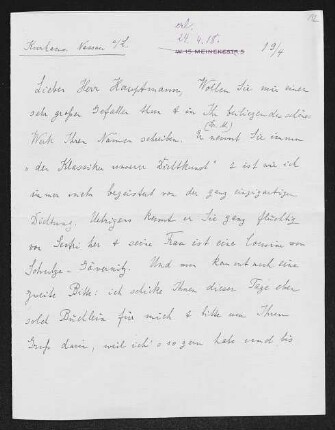 Kurhaus Nassau a/L.
erl.
24.4.18.
W. 15 MEINEKESTR. 5
19/4
Lieber Herr Hauptmann, Wollen Sie mir einen
sehr großen Gefallen thun & in Ihr beiliegendes schönes
Werk Ihren Namen schreiben. Er nennt Sie immer
"der Klassiker unserer Dichtkunst" & ist wie ich
immer mehr begeistert von der ganz einzigartigen
Dichtung. Uebrigens kennt er Sie ganz flüchtig
von her & seine Frau ist eine Cousine von
Schulze-Gävernitz. Und nun kommt noch eine
zweite Bitte: ich schicke Ihnen dieser Tage eben
solch Büchlein für mich & bitte um Ihren
Gruß darin, weil ich's so gern hab und bis